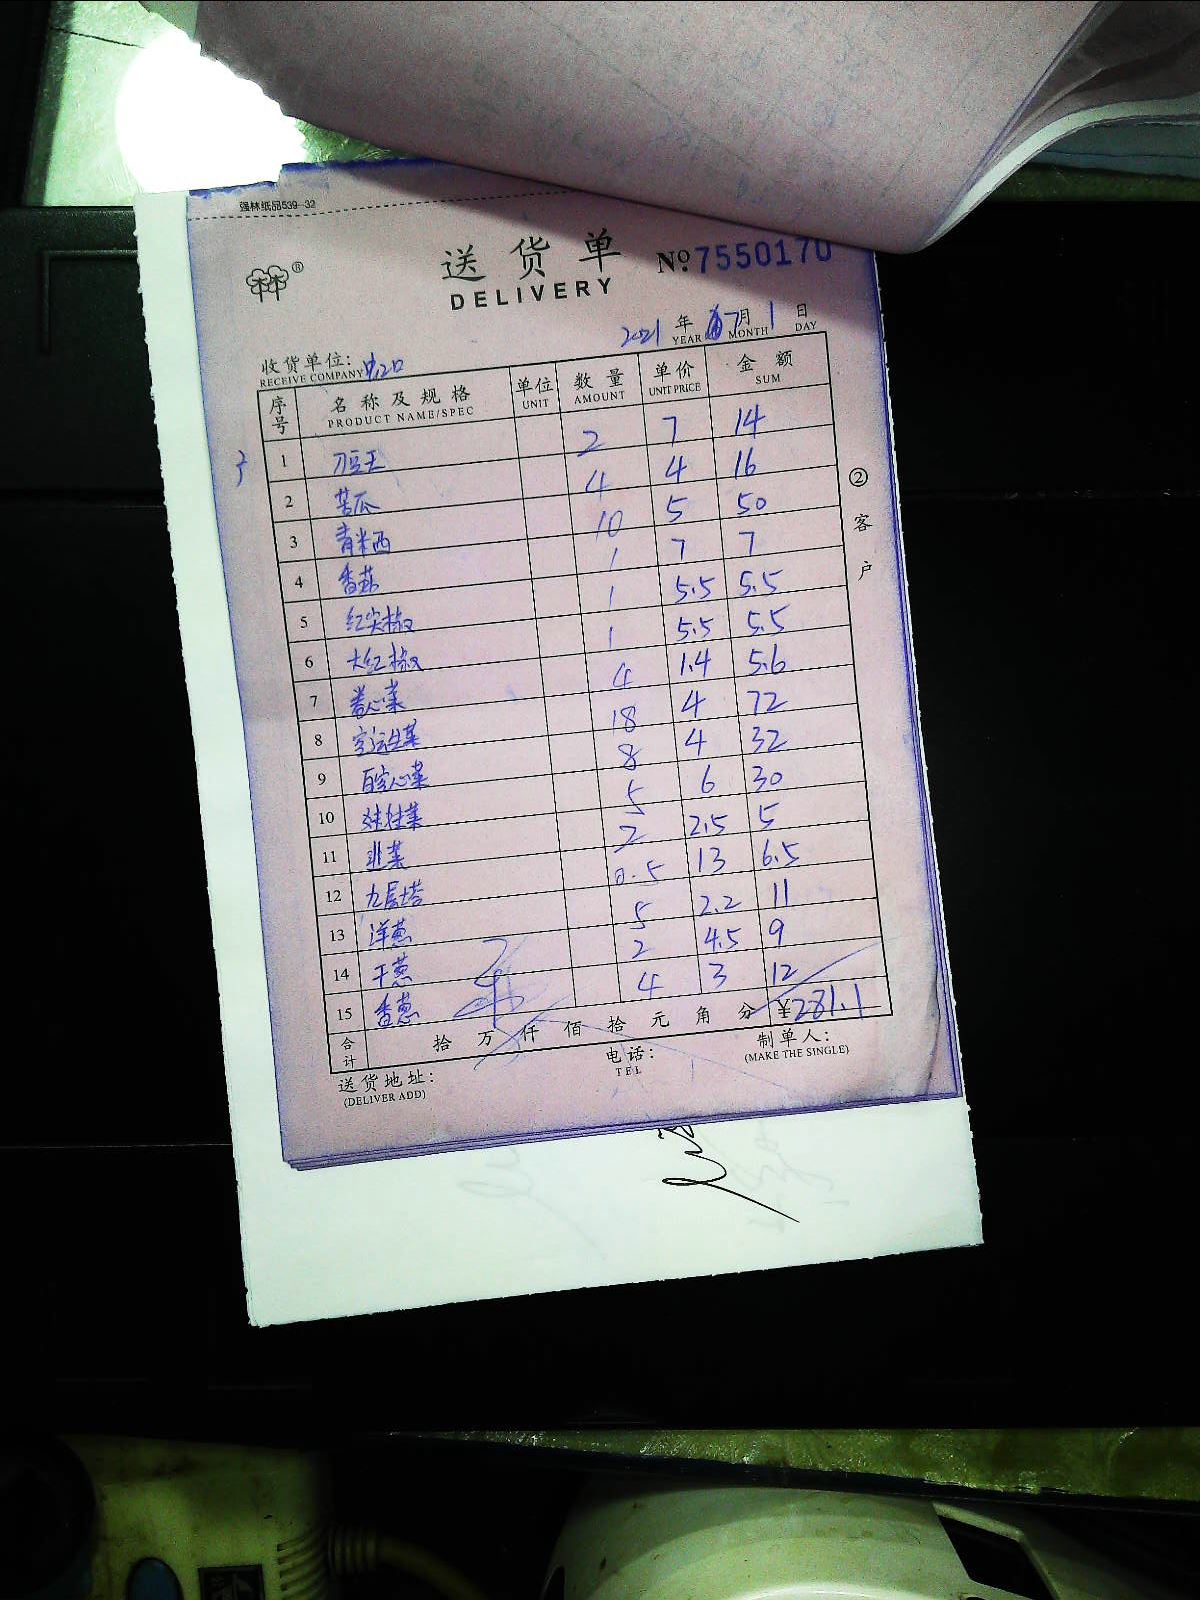 强林纸品539-32
送货单 №7550170
DELIVERY
2021 年 7 月 1 日
YEAR MONTH DAY
收货单位:
RECEIVE COMPANY
序号 名称及规格 单位 数量 单价 金额
PRODUCT NAME/SPEC UNIT AMOUNT UNIT PRICE SUM
1 刀豆王 2 7 14
2 苦瓜 4 4 16
3 青米西 10 5 50
4 香菇 1 7 7
5 红尖椒 1 5.5 5.5
6 大红椒 1 5.5 5.5
7 卷心菜 4 1.4 5.6
8 空运生菜 18 4 72
9 8 4 32
10 娃娃菜 5 6 30
11 韭菜 2 2.5 5
12 九层塔 0.5 13 6.5
13 洋葱 5 2.2 11
14 干葱 2 4.5 9
15 香葱 4 3 12
合计 拾 万 仟 佰 拾 元 角 分 ¥281.1
送货地址: 电话: 制单人:
(DELIVER ADD) TEL (MAKE THE SINGLE)
② 客户